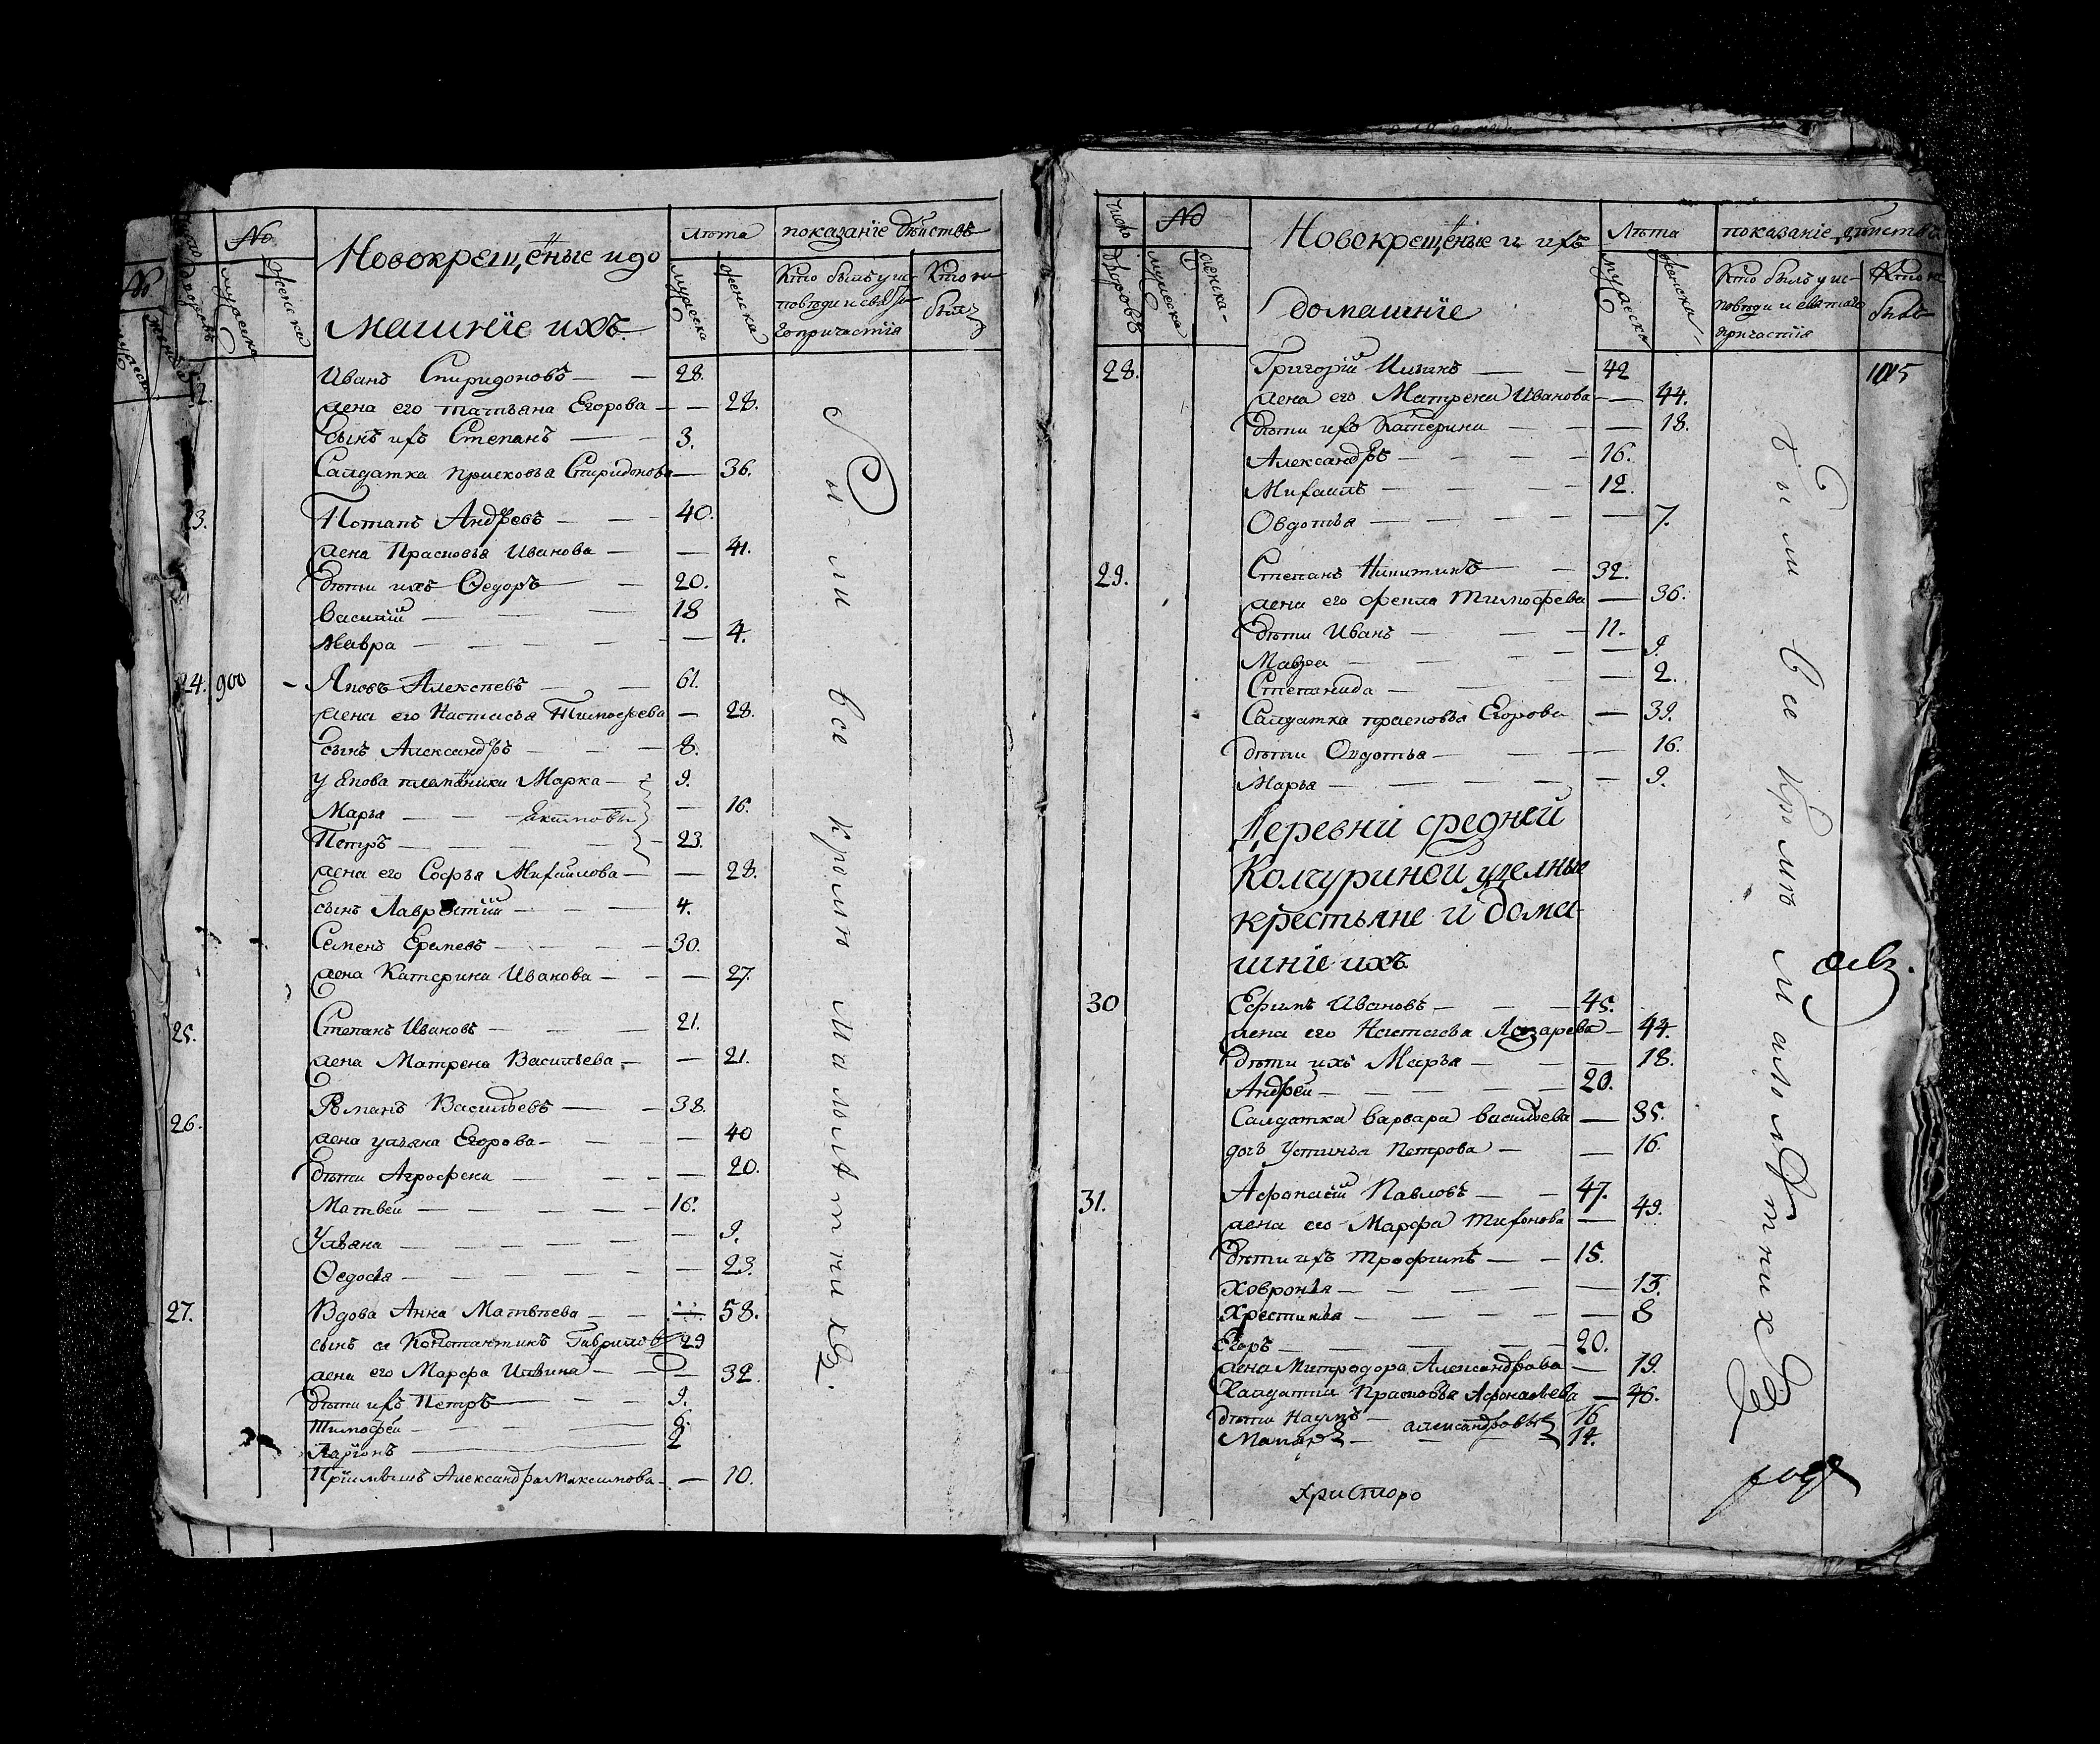 №
Новокрещеные и до
машніе ихъ
лѣта
показаніе дѣйствъ
мужеска
женска
Кто былъ у ис-
повѣди и свята-
го причастія
Кто не
былъ
Иванъ Спиридоновъ — 28.
жена его татьяна Егорова — 28.
сынъ ихъ Степанъ — 3.
Салдатка Спиридонова — 36.
23. Потапъ Андреевъ — 40.
жена Прасковья Иванова — 41.
дѣти ихъ Федоръ — 20.
Василій — 18
Мавра — 4.
24. 900 — Яковъ Алексѣевъ — 61.
жена его Настасья Тимофеева — 28.
сынъ Александръ — 8.
у Якова племѣники Марка — 9.
Марья — Екимовы — 16.
Петръ — 23.
жена его Софья Михаилова — 28.
сынъ Лаврентій — 4.
Семенъ Еремевъ — 30.
жена Катерина Иванова — 27.
25. Степанъ Ивановъ — 21.
жена Матрена Васильева — 21.
26. Романъ Васильевъ — 38.
жена ульяна Егорова — 40
дѣти Агрофена — 20.
Матвей — 16.
Ульяна — 9.
Федосья — 23.
27. Вдова Анна Матвѣева — 58.
сынъ ее Константинъ Гаврилов 29
жена его Марфа Ильина — 32.
дѣти ихъ Петръ — 9.
Тимофей — 6.
Ларіонъ — 2
Пріимышъ Александра Максимова — 10.
Были все кромѣ малолѣтнихъ.
число дворовъ
№
мужеска
женска
Новокрещеные и ихъ
домашніе
Лѣта
показаніе дѣйства
мужеска
женска
Кто былъ у ис-
повѣди и святаго
причастія
Кто не
былъ
1015
28. Григорій — 42
жена его Матрена Иванова — 44.
дѣти ихъ Катерина — 18.
Александръ — 16.
Михаилъ — 12.
Овдотья — 7.
29. Степанъ Никитинъ — 32.
жена его Фекла Тимофеева — 36.
дѣти Иванъ — 11.
Мавра — 9.
Степанида — 2.
Салдатка прасковья Егорова — 39.
дѣти Овдотья — 16.
Марья — 9.
Деревни средней
Колчуриной уделные
крестьяне и дома-
шніе ихъ
30 Ефимъ Ивановъ — 45.
жена его Настасья Лазарева — 44.
дѣти ихъ Марья — 18.
Андрей — 20.
Салдатка варвара васильева — 35.
дочь Устинья Петрова — 16.
31. Афонасій Павловъ — 47.
жена его Марфа Тихонова — 49.
дѣти ихъ Трофимъ — 15.
Ховронья — 13.
Хрестинья — 8
Егоръ — 20.
жена Митродора Александрова — 19.
Салдатка Прасковья Афонасьева — 46.
дѣти Наумъ — александровы 16
Макаръ — 14.
Были все кромѣ малолѣтнихъ
Христоро